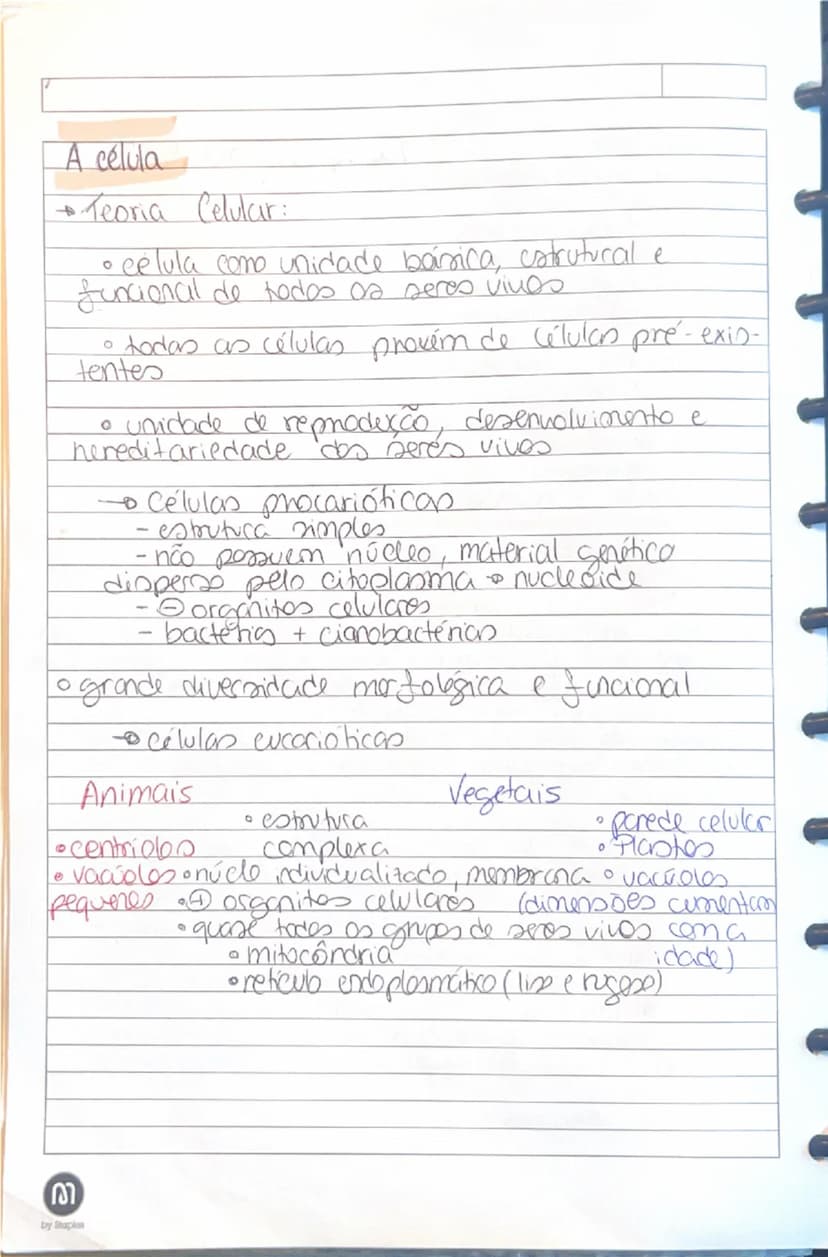 A célula
→ Teoria Celular:
◦ célula como unidade básica, estrutural e
funcional de todos os seres vivos
◦ todas as células provém de células pré-exis-
tentes
◦ unidade de reprodução, desenvolvimento e
hereditariedade dos seres vivos
→ Células procarióticas
- estrutura simples
- não possuem núcleo, material genético
disperso pelo citoplasma → nucleóide
- ⊖ organitos celulares
- bactérias + cianobactérias
◦ grande diversidade morfológica e funcional
→ células eucarióticas
Animais Vegetais
◦ estrutura ◦ parede celular
• centríolos complexa ◦ Plastos
• vacúolos ◦ núcleo individualizado, membrana ◦ vacúolos
pequenos ◦ ⊕ organitos celulares (dimensões aumentam
◦ quase todos os grupos de seres vivos com a
◦ mitocôndria idade)
◦ retículo endoplasmático (liso e rugoso)
by Staples